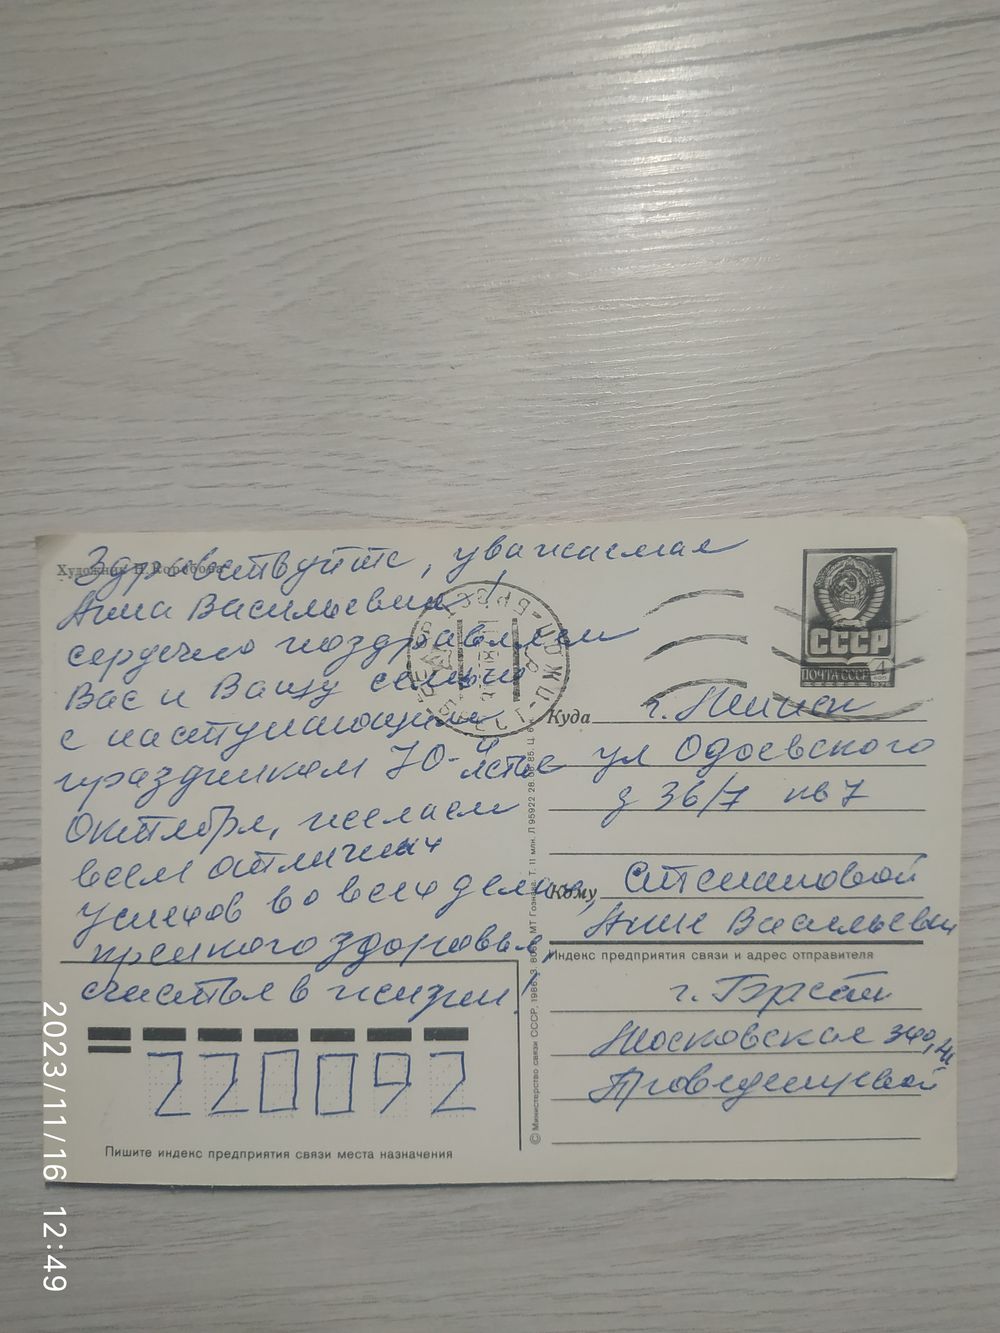 Художник Н. Коробова
Здравствуйте, уважаемая
Анна Васильевна!
сердечно поздравляем
Вас и Вашу семью
с наступающим
праздником 70-летие
Октября, желаем
всем отличных
успехов во всех делах,
крепкого здоровья,
счастья в жизни!
СССР
ПОЧТА СССР
4
КОП
1976
Куда г. Минск
ул Одоевского
д 36/7 кв 7
Кому Степановой
Анне Васильевне
Индекс предприятия связи и адрес отправителя
г. Брест
Московская
220092
Пишите индекс предприятия связи места назначения
© Министерство связи СССР, 1986. МТ Гознака. Т. 11 млн. Л 95922
2023/11/16 12:49